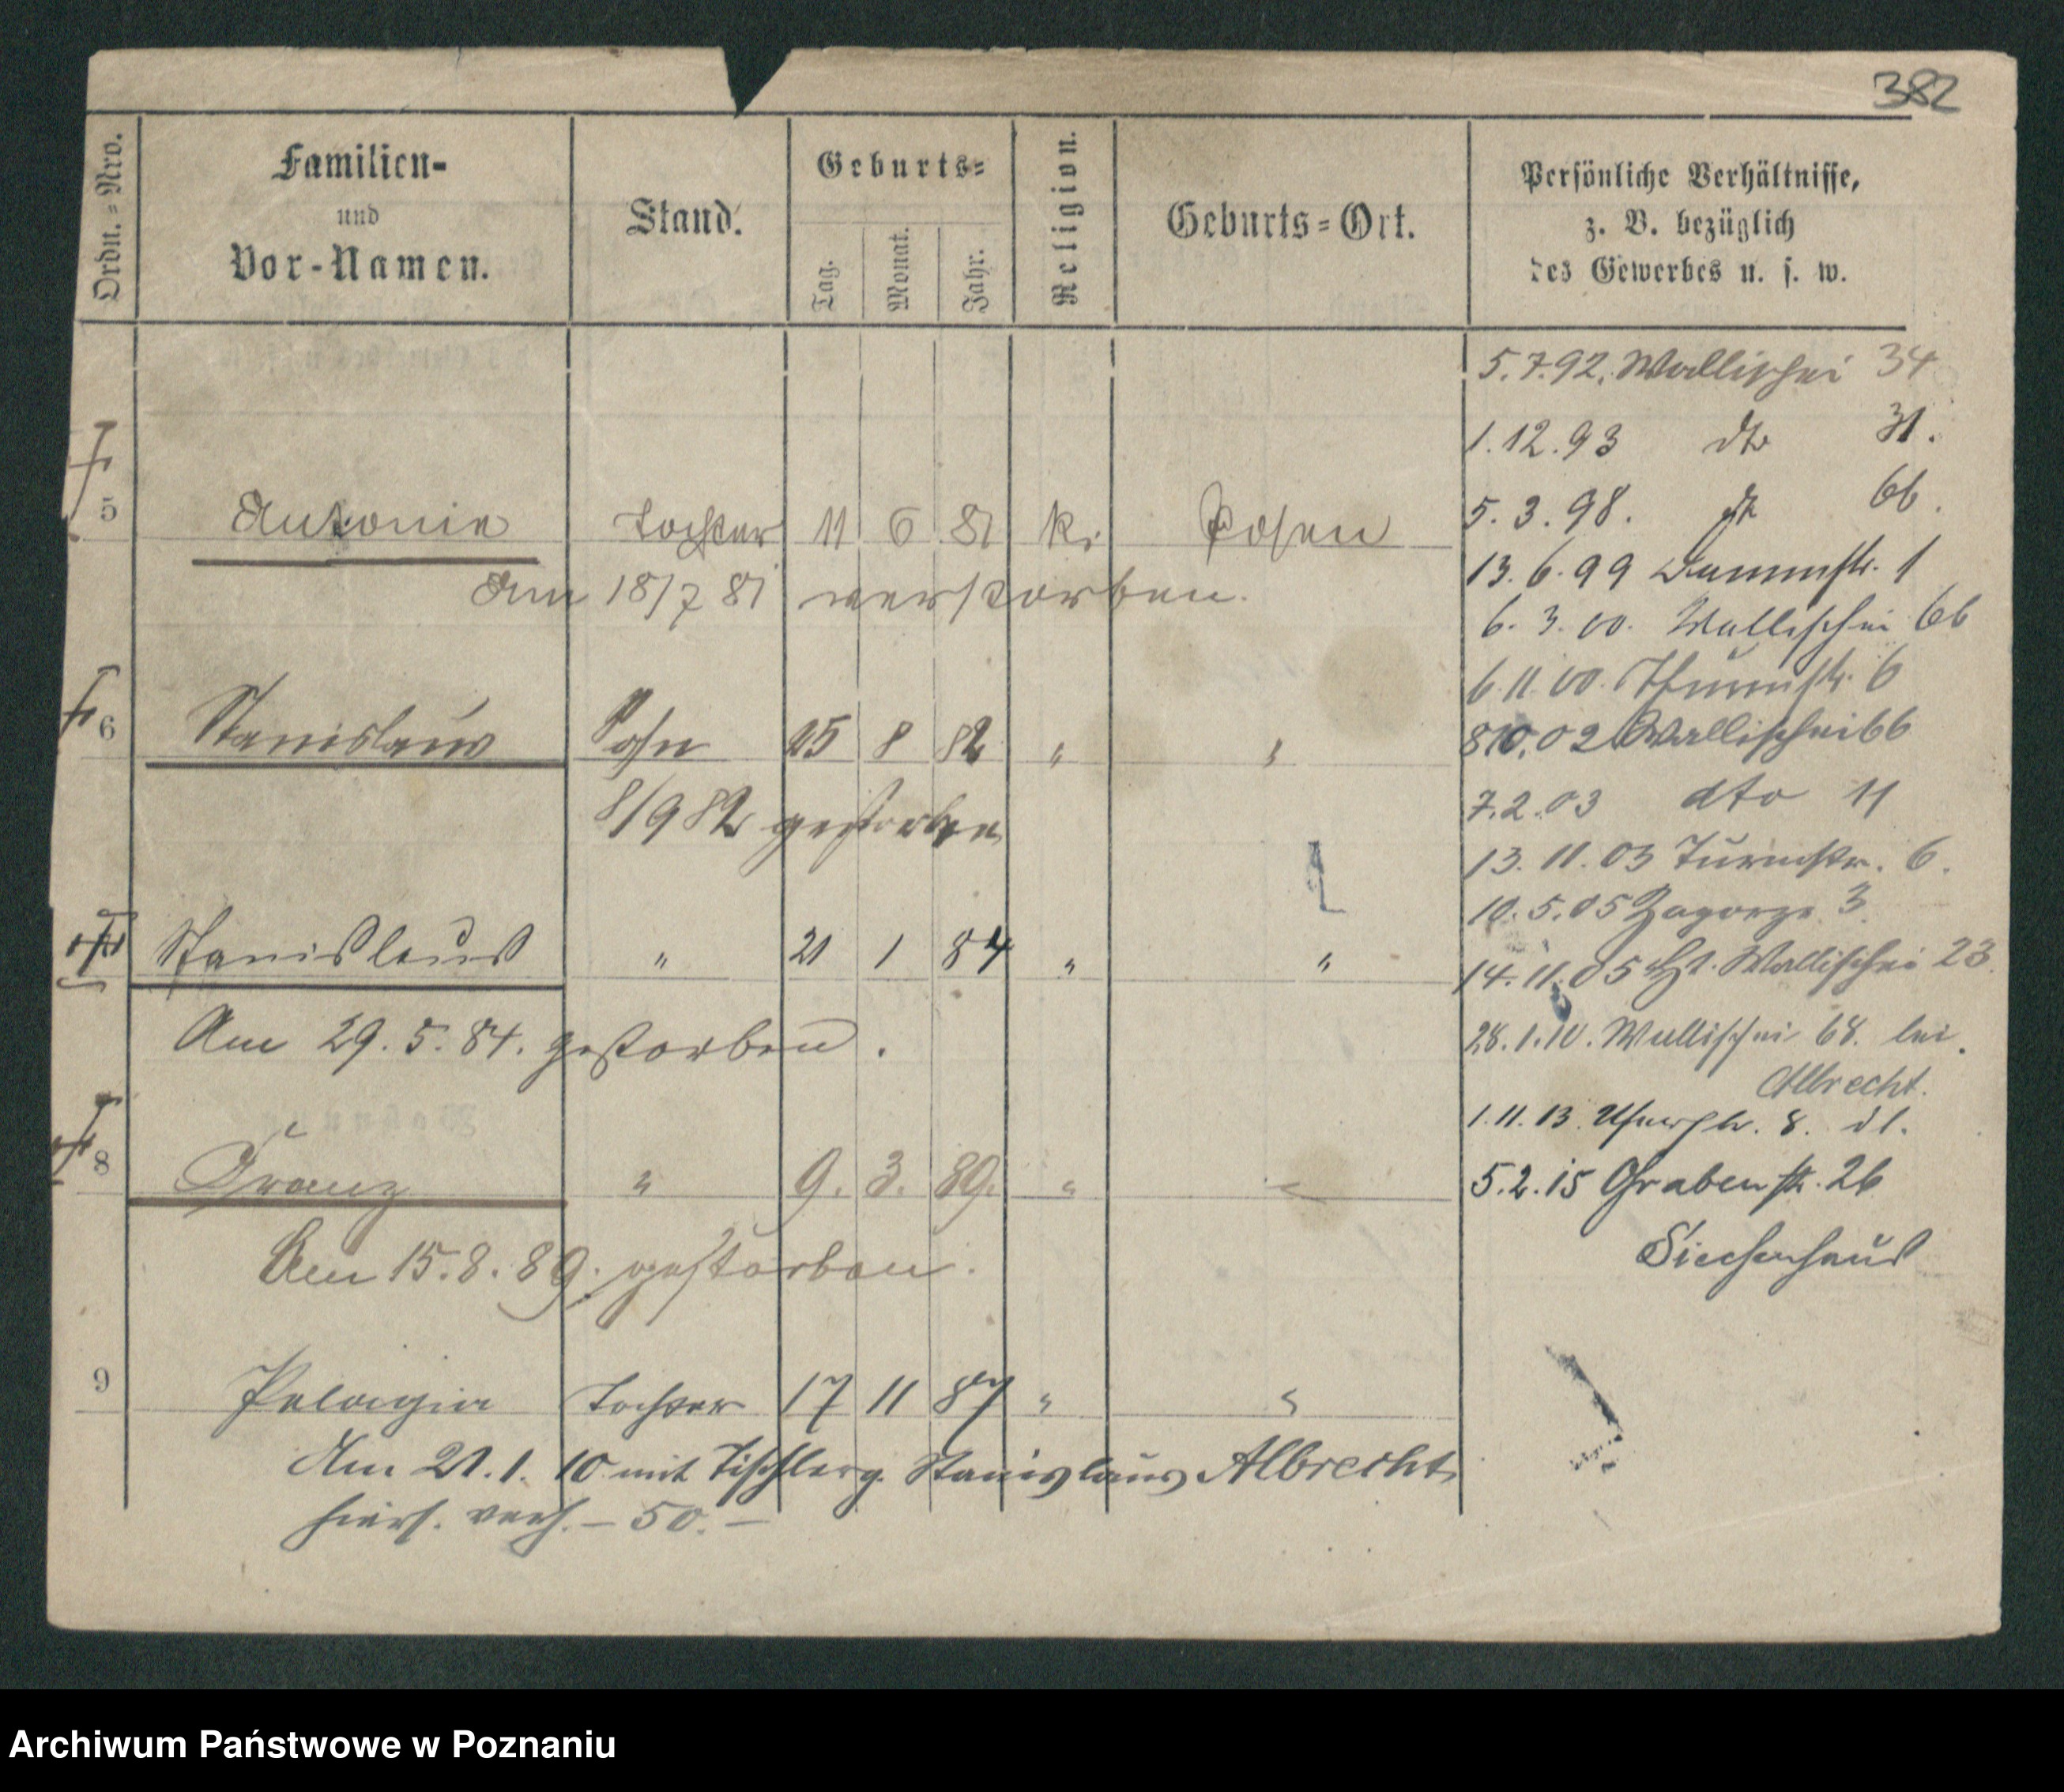 382
Ordn.-Nro.
Familien-
und
Vor-Namen.
Stand.
Geburts-
Tag.
Monat.
Jahr.
Religion.
Geburts-Ort.
Persönliche Verhältnisse,
z. B. bezüglich
des Gewerbes u. s. w.
5.7.92. Wallischei 34
1.12.93 dto 31.
5.3.98. dto 66.
5 Antonie Tochter 11 6 81 k. Posen
13.6.99 Dammstr. 1
Am 18/7 81 verstorben.
6.3.00. Wallischei 66
6.11.00. Thurmstr. 6
6 Stanislaus Sohn 25 8 82 " "
8 10.02 Wallischei 66
7.2.03 dto 11
8/9 82 gestorben
13.11.03 Turmstr. 6.
10.5.05 Zagorze 3.
Stanislaus " 21 1 84 " "
14.11.05 Wallischei 23.
Am 29.5.84. gestorben.
28.1.10. Wallischei 68. bei
Albrecht.
1.11.13. 8.
8 Franz " 9. 3. 89. " "
5.2.15 Grabenstr. 26
Siechenhaus
Am 15.8.89. gestorben.
9 Pelagia Tochter 17 11 87 " "
Am 21.1.10 mit Tischlerg. Stanislaus Albrecht
hiers. verh. – 50. –
Archiwum Państwowe w Poznaniu